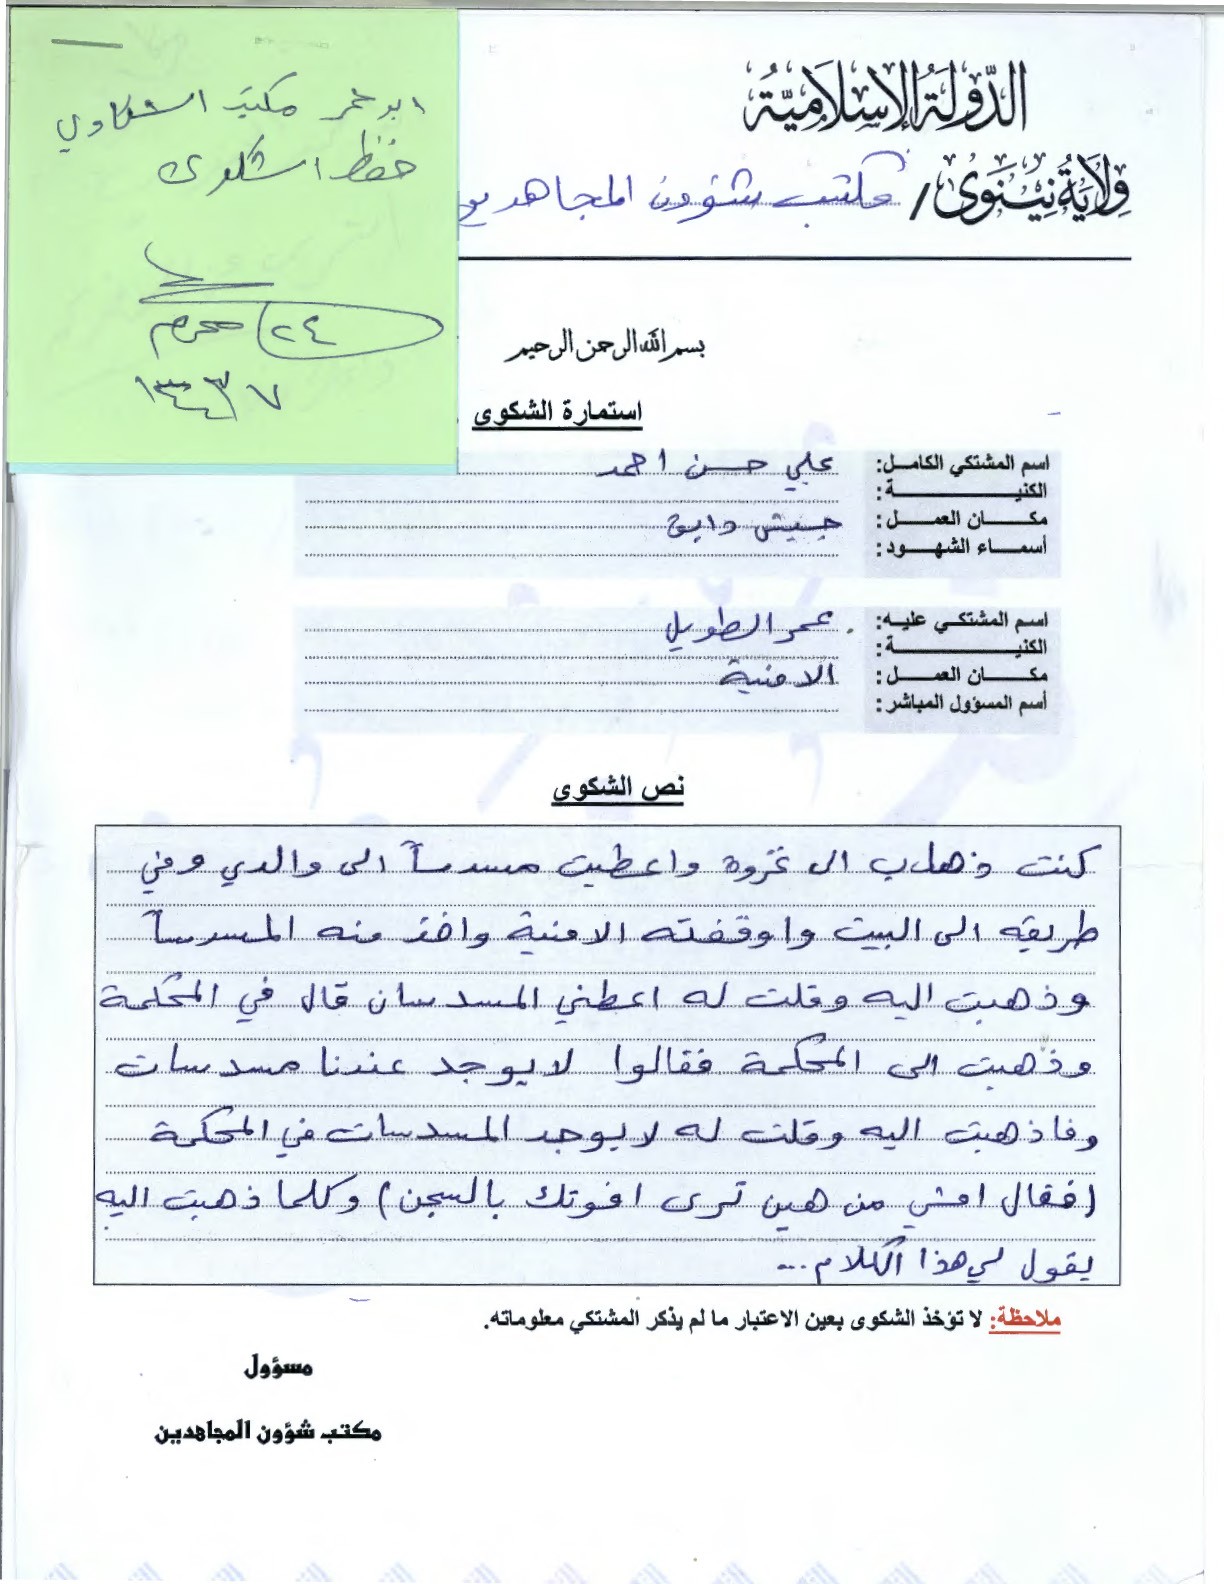 ابو عمر مكتب الشكاوي
حفظ الشكوى
٢٤ محرم
١٤٣٧
الدولة الإسلامية
ولاية نينوى / مكتب شؤون المجاهدين
بسم الله الرحمن الرحيم
استمارة الشكوى
اسم المشتكي الكامل: علي حسن احمد
الكنية:
مكان العمل: جيش دابق
أسماء الشهود:
اسم المشتكي عليه: عمر الطويل
الكنية:
مكان العمل: الامنية
أسم المسؤول المباشر:
نص الشكوى
كنت ذهاب الى غزوة واعطيت مسدساً الى والدي وفي
طريقه الى البيت واوقفته الامنية واخذ منه المسدساً
وذهبت اليه وقلت له اعطني المسدسان قال في المحكمة
وذهبت الى المحكمة فقالوا لايوجد عندنا مسدسات
وفاذهبت اليه وقلت له لايوجد المسدسات في المحكمة
(فقال امشي من هين ترى افوتك بالسجن) وكلما ذهبت اليه
يقول لي هذا الكلام...
ملاحظة: لا تؤخذ الشكوى بعين الاعتبار ما لم يذكر المشتكي معلوماته.
مسؤول
مكتب شؤون المجاهدين